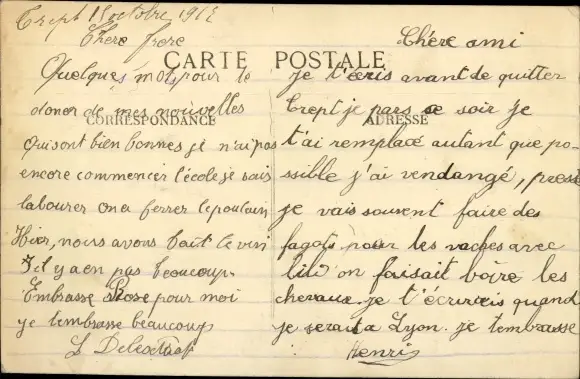 Crept 18 octobre 1912
Chere frere
CARTE POSTALE
CORRESPONDANCE
Quelques mots pour te
doner de mes nouvelles
Qui sont bien bonnes je n'ai pas
encore commencer l'école je vais
labourer on a ferrer le poulain
Hier, nous avons tait le vin
Il y a en pas beaucoup.
Embrasse Rose pour moi
je tembrasse beaucoup
Chére ami
ADRESSE
je t'écris avant de quitter
Crept je pars ce soir je
t'ai remplacé autant que po-
ssible j'ai vendangé, pressé
je vais souvent faire des
fagots pour les vaches avec
lili on faisait boire les
chevaux. je t'écrirais quand
je serait a Lyon. je tembrasse
Henri